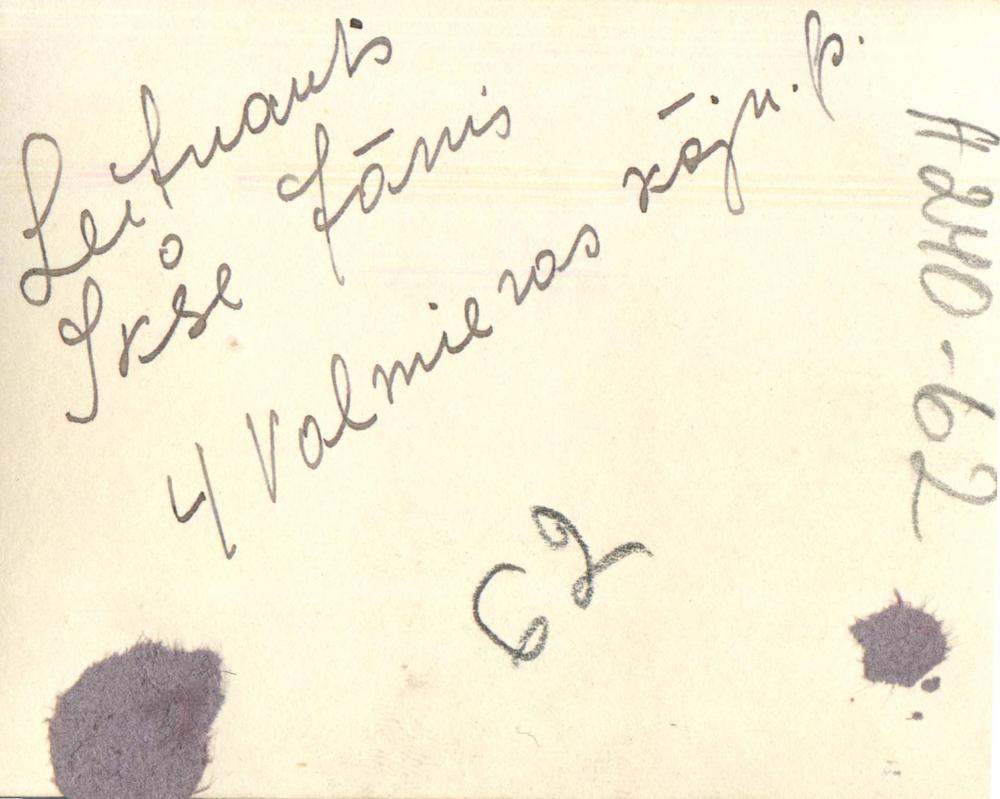 Leitnants
Ikše Jānis
4 Valmieras kājn. p.
62
A 240-62